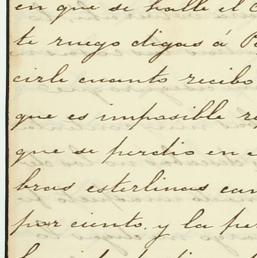 en que se halle el
te ruego digas á
cirle cuanto recibo
que es imposible
que se perdio en
bras esterlinas
por ciento, y la